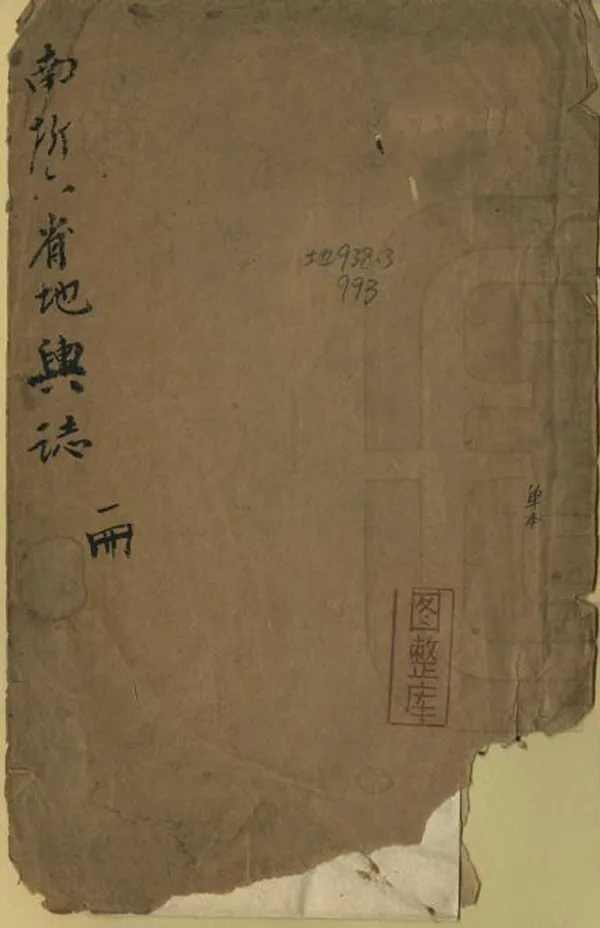 南圻六省地輿誌
一冊
地938.3
993
单本
图整库